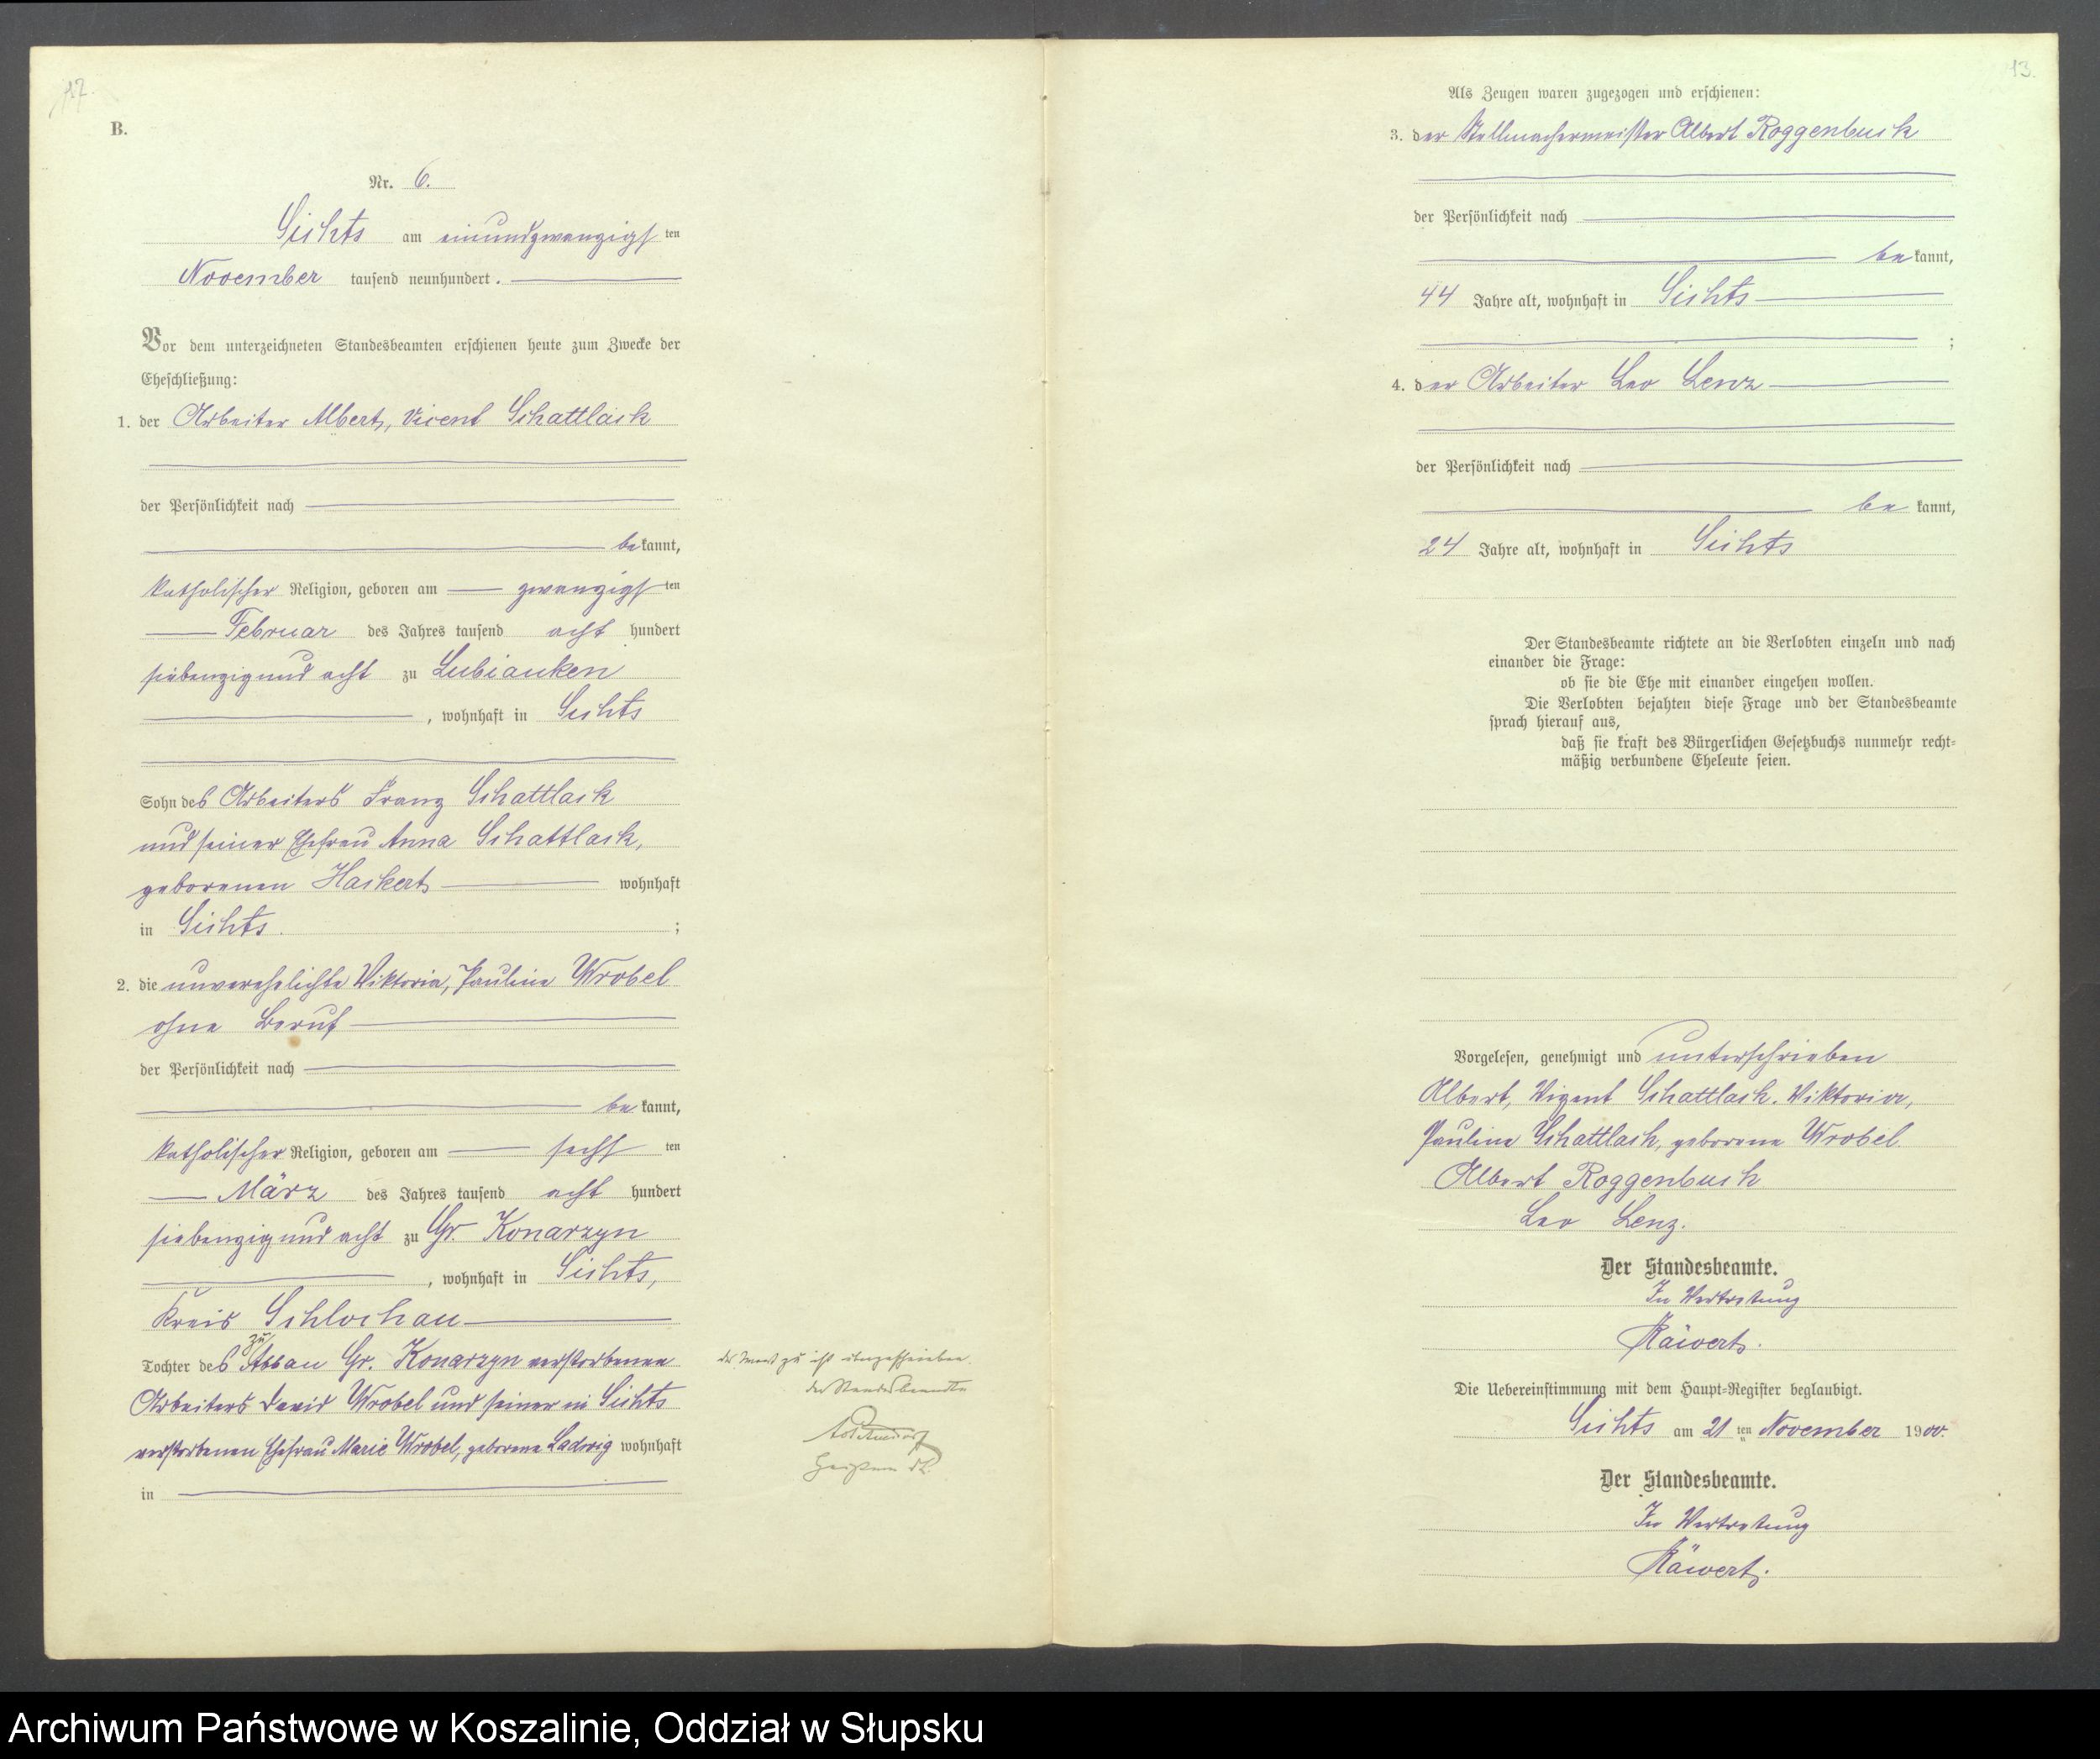 17.
B.
Nr. 6.
Sichts am einundzwanzigsten
November tausend neunhundert.
Vor dem unterzeichneten Standesbeamten erschienen heute zum Zwecke der
Eheschließung:
1. der Arbeiter Albert, Vicent Schattlack
der Persönlichkeit nach
bekannt,
katholischer Religion, geboren am zwanzigsten
Februar des Jahres tausend acht hundert
siebenzig und acht zu Lubianken
, wohnhaft in Sichts
Sohn des Arbeiters Franz Schattlack
und seiner Ehefrau Anna Schattlack,
geborenen Hackert wohnhaft
in Sichts. ;
2. die unverehelichte Viktoria, Pauline Wrobel
ohne Beruf
der Persönlichkeit nach
bekannt,
katholischer Religion, geboren am sechsten
März des Jahres tausend acht hundert
siebenzig und acht zu Gr. Konarzyn
, wohnhaft in Sichts,
Kreis Schlochau
zu
Tochter des Abbau Gr. Konarzyn verstorbenen
Arbeiters David Wrobel und seiner in Sichts
verstorbenen Ehefrau Marie Wrobel, geborene Ladwig wohnhaft
in
das Wort zu ist übergeschrieben.
der Standesbeamte
13.
Als Zeugen waren zugezogen und erschienen:
3. der Stellmachermeister Albert Roggenbuck
der Persönlichkeit nach
bekannt,
44 Jahre alt, wohnhaft in Sichts
;
4. der Arbeiter Leo Lenz
der Persönlichkeit nach
bekannt,
24 Jahre alt, wohnhaft in Sichts
Der Standesbeamte richtete an die Verlobten einzeln und nach
einander die Frage:
ob sie die Ehe mit einander eingehen wollen.
Die Verlobten bejahten diese Frage und der Standesbeamte
sprach hierauf aus,
daß sie kraft des Bürgerlichen Gesetzbuchs nunmehr recht-
mäßig verbundene Eheleute seien.
Vorgelesen, genehmigt und unterschrieben
Albert, Vizent Schattlack. Viktoria,
Pauline Schattlack, geborene Wrobel
Albert Roggenbuck
Leo Lenz.
Der Standesbeamte.
In Vertretung
Räwert.
Die Uebereinstimmung mit dem Haupt-Register beglaubigt.
Sichts am 21ten November 1900.
Der Standesbeamte.
In Vertretung
Räwert.
Archiwum Państwowe w Koszalinie, Oddział w Słupsku